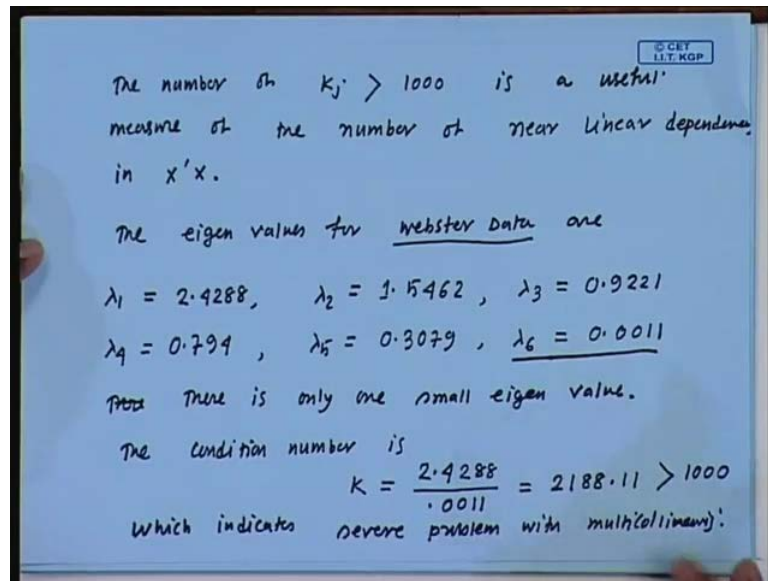 © CET
I.I.T. KGP
The number of Kj > 1000 is a useful
measure of the number of near linear dependency
in x'x.
The eigen values for Webster Data are
λ1 = 2.4288, λ2 = 1.5462, λ3 = 0.9221
λ4 = 0.794, λ5 = 0.3079, λ6 = 0.0011
There is only one small eigen value.
The condition number is
K = 2.4288 / .0011 = 2188.11 > 1000
Which indicates severe problem with